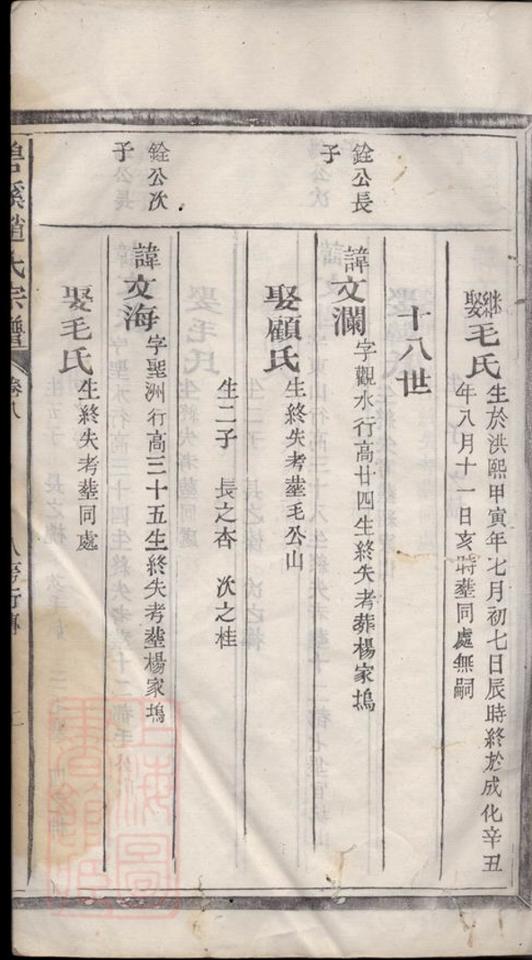 継娶毛氏
生於洪熙甲寅年七月初七日辰時終於成化辛丑
年八月十一日亥時塟同處無嗣
十八世
銓公長
子
諱文瀾
字觀水行高廿四生終失考葬楊家塢
娶顧氏
生終失考塟毛公山
生二子 長之杏 次之桂
銓公次
子
諱文海
字聖洲行高三十五生終失考塟楊家塢
娶毛氏
生終失考塟同處
碧溪趙氏宗譜
卷八
上海圖
書館藏